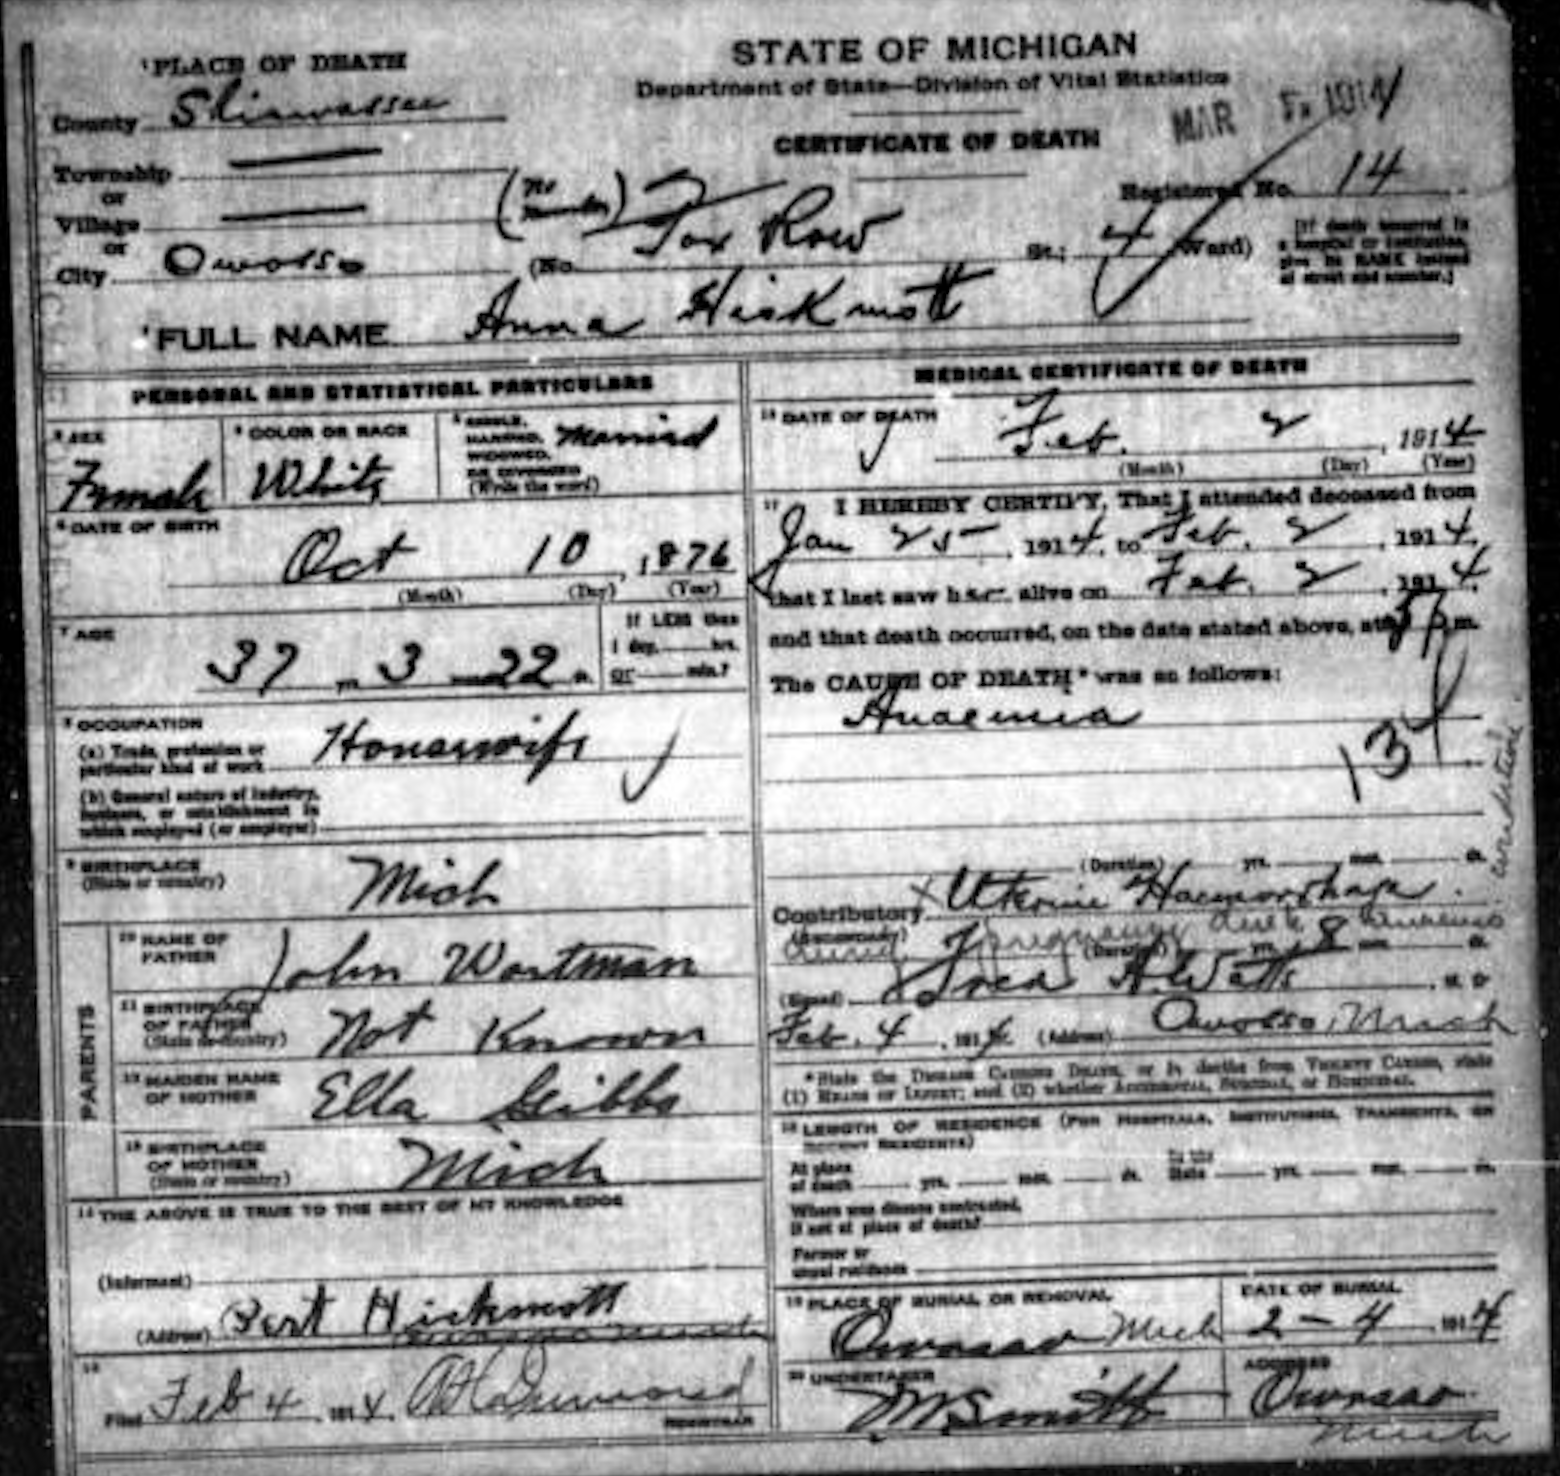 STATE OF MICHIGAN
Department of State—Division of Vital Statistics
CERTIFICATE OF DEATH
MAR 1914
Registered No. 14
¹PLACE OF DEATH
County Shiawassee
Township
or
Village
or
City Owosso
(No Row St.; 4 Ward)
[If death occurred in
a hospital or institution,
give its NAME instead
of street and number.]
²FULL NAME Anna Hickmott
PERSONAL AND STATISTICAL PARTICULARS
³ SEX
Female
⁴ COLOR OR RACE
White
⁵ SINGLE,
MARRIED,
WIDOWED,
OR DIVORCED
(Write the word)
Married
⁶ DATE OF BIRTH
Oct 10, 1876
(Month) (Day) (Year)
⁷ AGE
37 3 22
If LESS than
1 day, hrs.
or min.?
⁸ OCCUPATION
(a) Trade, profession or
particular kind of work Housewife
(b) General nature of industry,
business, or establishment in
which employed (or employer)
⁹ BIRTHPLACE
(State or country) Mich
PARENTS
10 NAME OF
FATHER John Wortman
11 BIRTHPLACE
OF FATHER
(State or country) Not Known
12 MAIDEN NAME
OF MOTHER Ella Gibbs
13 BIRTHPLACE
OF MOTHER
(State or country) Mich
14 THE ABOVE IS TRUE TO THE BEST OF MY KNOWLEDGE
(Informant)
Bert Hickmott
(Address)
15
Filed Feb 4, 1914.
REGISTRAR
MEDICAL CERTIFICATE OF DEATH
16 DATE OF DEATH
Feb. 2, 1914
(Month) (Day) (Year)
17 I HEREBY CERTIFY, That I attended deceased from
Jan 25, 1914, to Feb. 2, 1914,
that I last saw her alive on Feb. 2, 1914
and that death occurred, on the date stated above, at m.
The CAUSE OF DEATH* was as follows:
Anaemia
(Duration) yrs. mos. ds.
Contributory Uterine Haemorrhage
(SECONDARY)
pregnancy
(Duration) yrs. 8 mos. ds.
(Signed) Fred A Watts, M. D.
Feb. 4, 1914. (Address) Owosso, Mich
*State the DISEASE CAUSING DEATH, or in deaths from VIOLENT CAUSES, state
(1) MEANS OF INJURY; and (2) whether ACCIDENTAL, SUICIDAL, or HOMICIDAL.
18 LENGTH OF RESIDENCE (FOR HOSPITALS, INSTITUTIONS, TRANSIENTS, OR
RECENT RESIDENTS)
At place
of death yrs. mos. ds. State yrs. mos. ds.
Where was disease contracted,
if not at place of death?
Former or
usual residence
19 PLACE OF BURIAL OR REMOVAL
Owosso Mich
DATE OF BURIAL
2-4 1914
20 UNDERTAKER
ADDRESS
Owosso
Mich